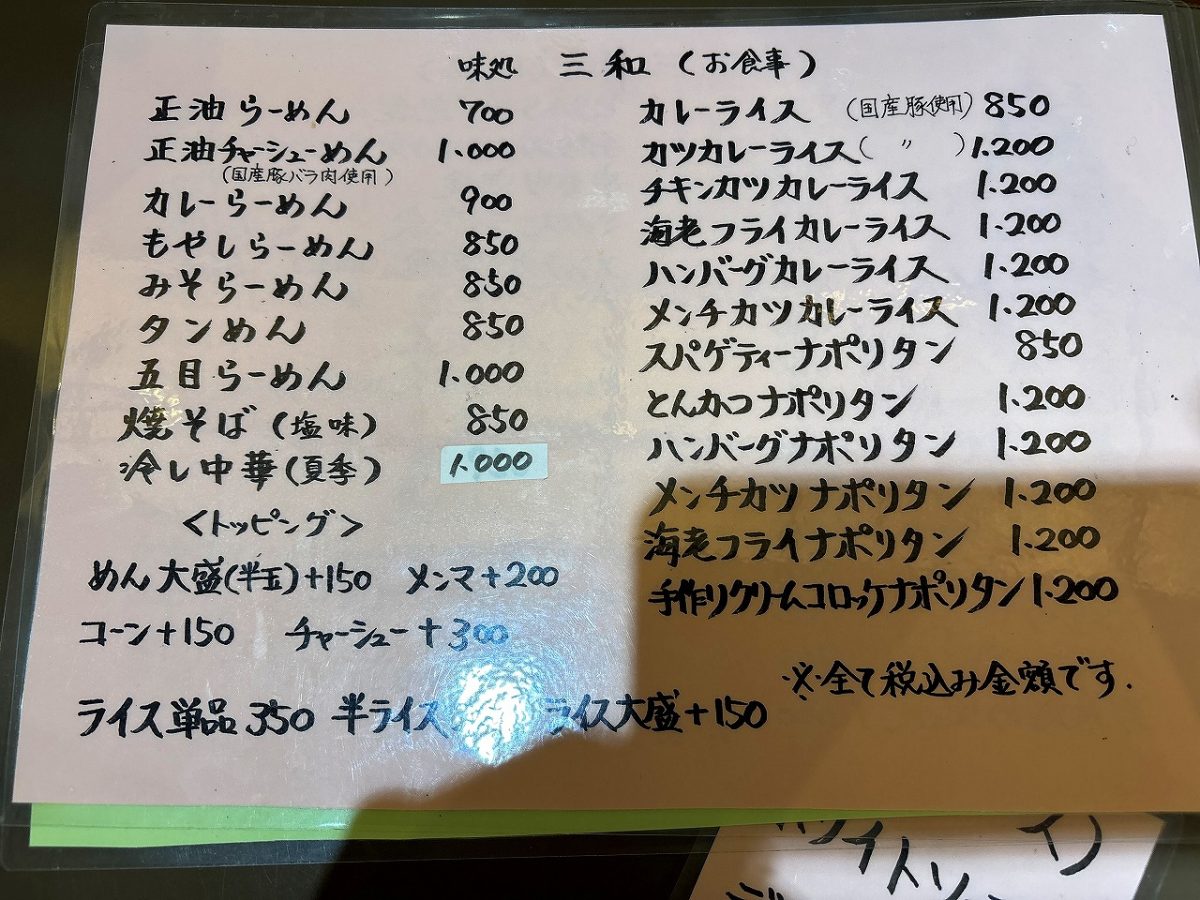 味処 三和 (お食事)
正油らーめん 700
正油チャーシューめん 1.000
(国産豚バラ肉使用)
カレーらーめん 900
もやしらーめん 850
みそらーめん 850
タンめん 850
五目らーめん 1.000
焼そば(塩味) 850
冷し中華(夏季) 1.000
<トッピング>
めん大盛(半玉)+150 メンマ+200
コーン+150 チャーシュー+300
ライス単品350 半ライス ライス大盛+150
カレーライス (国産豚使用) 850
カツカレーライス( 〃 ) 1.200
チキンカツカレーライス 1.200
海老フライカレーライス 1.200
ハンバーグカレーライス 1.200
メンチカツカレーライス 1.200
スパゲティーナポリタン 850
とんかつナポリタン 1.200
ハンバーグナポリタン 1.200
メンチカツナポリタン 1.200
海老フライナポリタン 1.200
手作りクリームコロッケナポリタン 1.200
※全て税込み金額です.